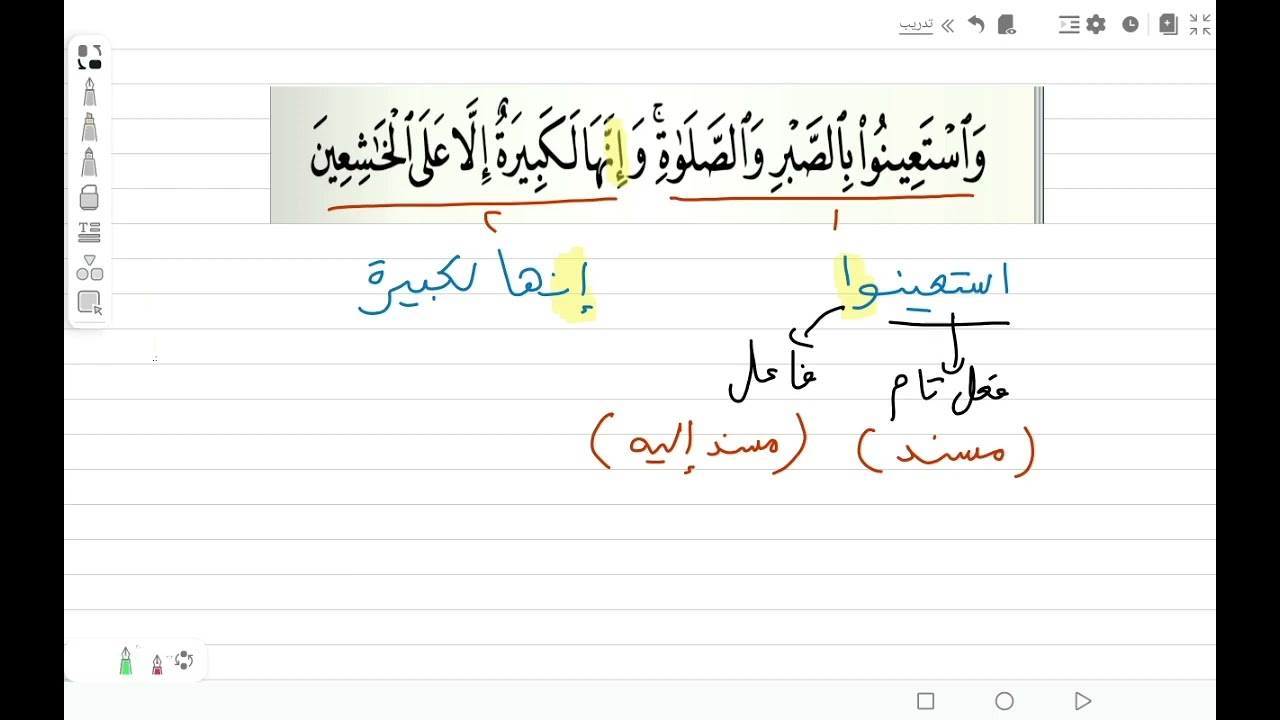 تدريب
وَٱسْتَعِينُوا۟ بِٱلصَّبْرِ وَٱلصَّلَوٰةِ ۚ وَإِنَّهَا لَكَبِيرَةٌ إِلَّا عَلَى ٱلْخَـٰشِعِينَ
١ ٢
استعينوا إنها لكبيرة
فعل تام فاعل
(مسند) (مسند إليه)